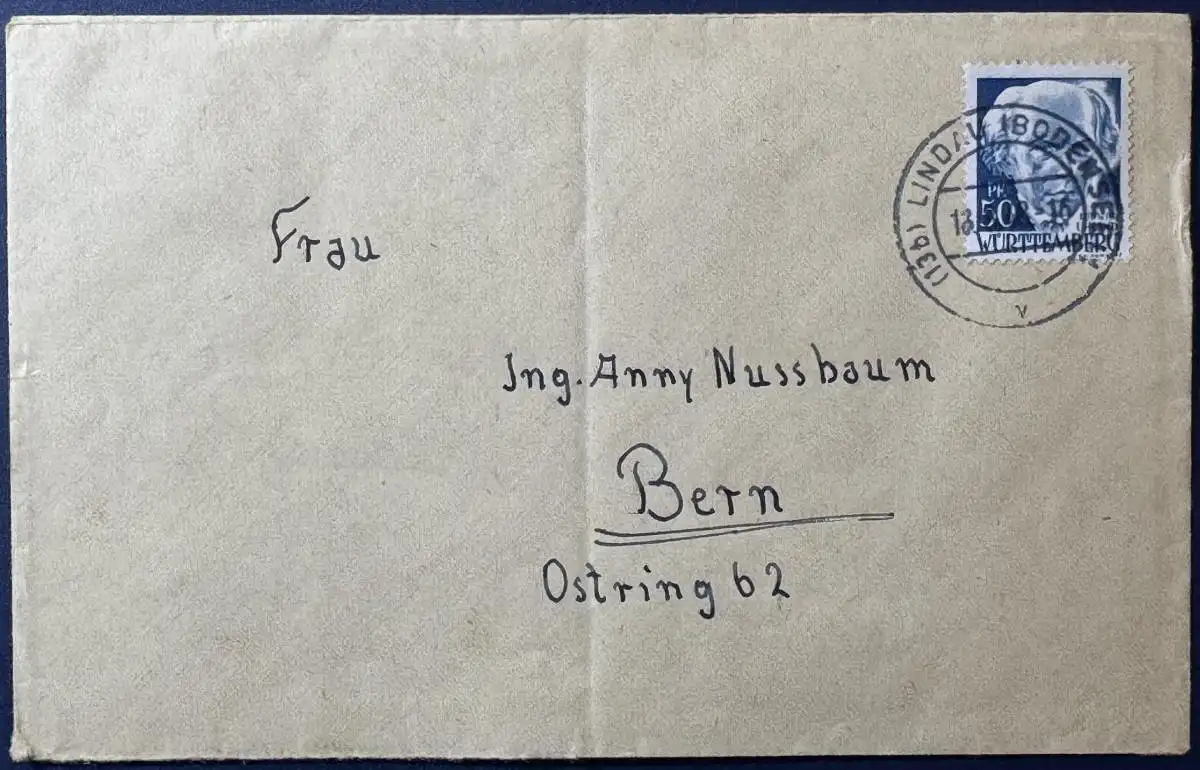 PF.
50
WÜRTTEMBERG
(13b) LINDAU (BODENSEE)
v
Frau
Ing. Anny Nussbaum
Bern
Ostring 62